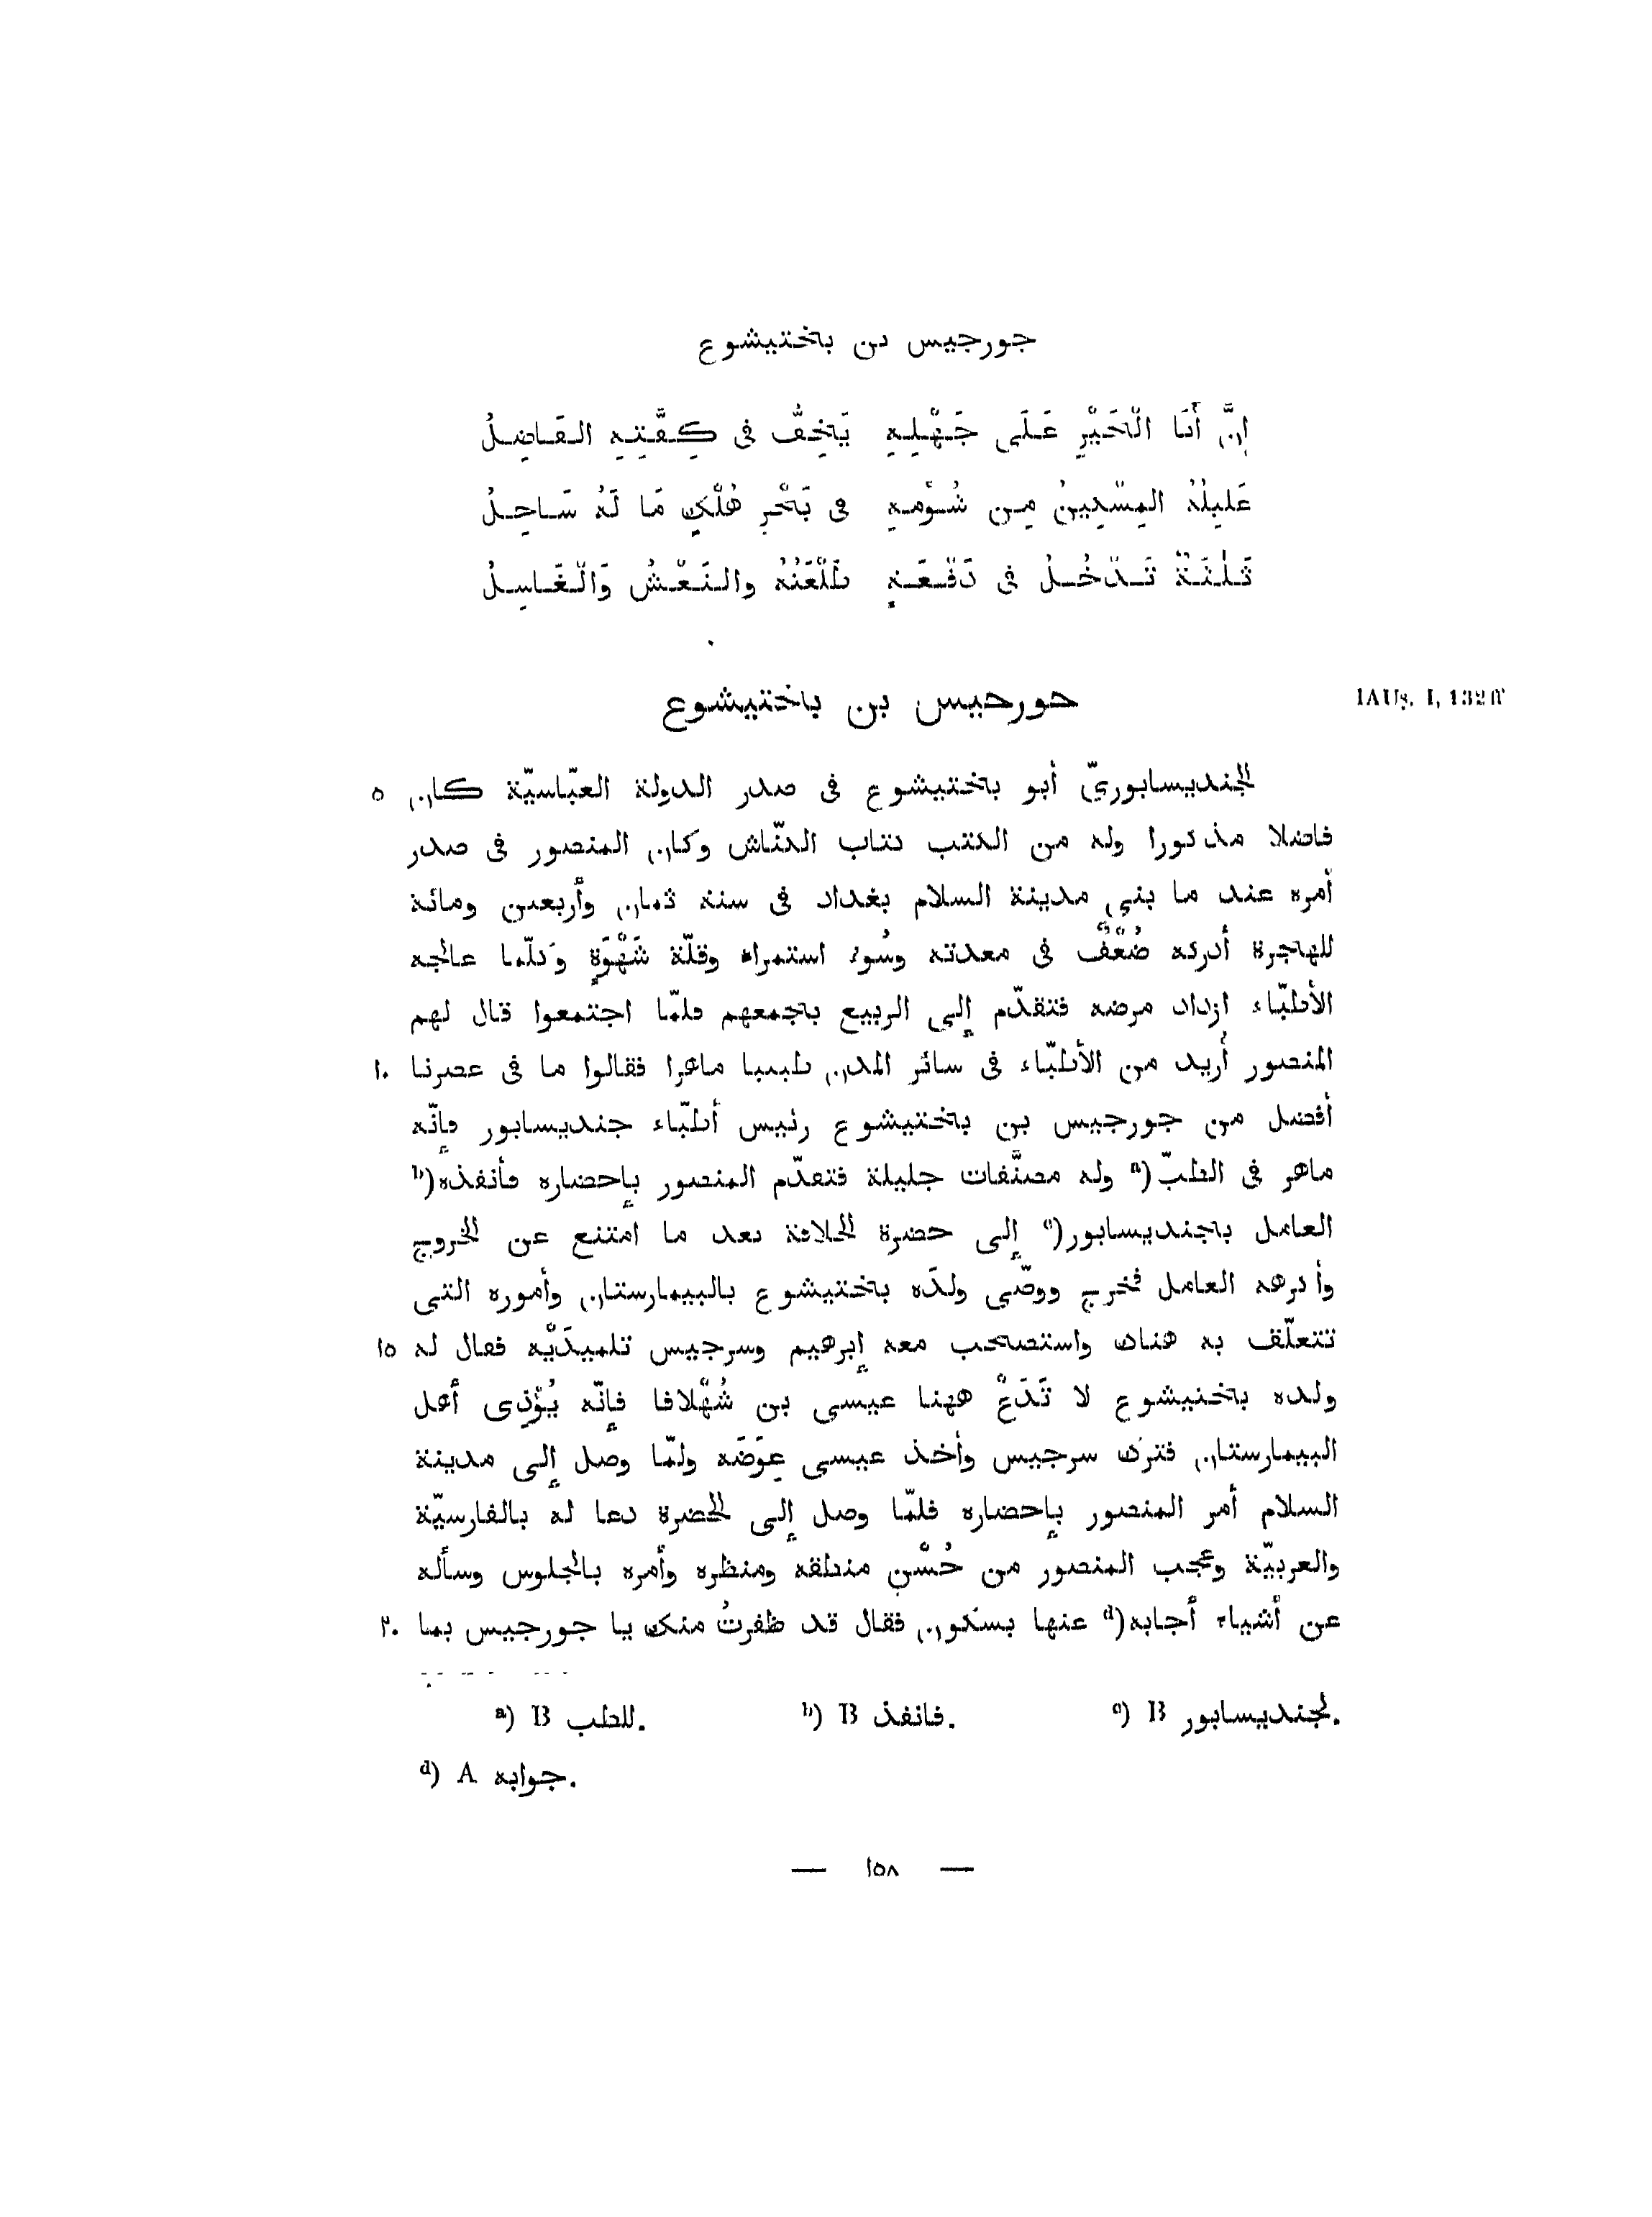 جورجيس بن بختيشوع
إِنَّ أَبَا الْخَيْرِ عَلَى جَهْلِهِ يَخِفُّ فى كِفَّتِهِ الفَاضِلُ
عَلِيلُهُ المِسْكِينُ مِن شُؤْمِهِ فى بَحْرِ هُلْكٍ مَا لَهُ سَاحِلُ
ثَلٰثَةٌ تَدْخُلُ فى دَفْعَةٍ طَلْعَتُهُ والنَعْشُ وَالْغَاسِلُ
جورجيس بن باختيشوع
IAUṣ. I, 132 ff
الجنديسابورىّ أبو بختيشوع فى صدر الدولة العبّاسيّة كان ٥
فاضلا مذكورا وله من الكتب كتاب الكنّاش وكان المنصور فى صدر
أمره عند ما بنى مدينة السلام بغداد فى سنة ثمان وأربعين ومائة
للهجرة أدركه ضُعْفٌ فى معدته وسُوء استمراء وقلّة شَهْوَةٍ وكلّما عالجه
الأطبّاء ازداد مرضه فتقدّم إلى الربيع بجمعهم فلمّا اجتمعوا قال لهم
المنصور أُريد من الأطبّاء فى سائر المدن طبيبا ماهرا فقالوا ما فى عصرنا ١٠
أفضل من جورجيس بن بختيشوع رئيس أطبّاء جنديسابور فإنّه
ماهر فى الطبّ(a وله مصنَّفات جليلة فتقدّم المنصور بإحضاره فأنفذه(b
العامل بجنديسابور(c إلى حضرة الخلافة بعد ما امتنع عن الخروج
وأكرهه العامل فخرج ووصّى ولدَه بختيشوع بالبيمارستان وأموره التى
تتعلّق به هناك واستصحب معه إبرهيم وسرجيس تلميذَيْه فقال له ١٥
ولده بختيشوع لا تَدَعْ ههنا عيسى بن شُهْلافا فإنّه يُؤْذِى أهل
البيمارستان فترك سرجيس وأخذ عيسى عِوَضَه ولمّا وصل إلى مدينة
السلام أمر المنصور بإحضاره فلمّا وصل إلى الحضرة دعا له بالفارسيّة
والعربيّة وعجب المنصور من حُسْنِ منطقه ومنظره وأمره بالجلوس وسأله
عن أشياء أجابه(d عنها بسكون فقال قد ظفرتُ منك يا جورجيس بما ٢٠
a) B للطب. b) B فانفذ. c) B لجنديسابور.
d) A جوابه.
— ١٥٨ —